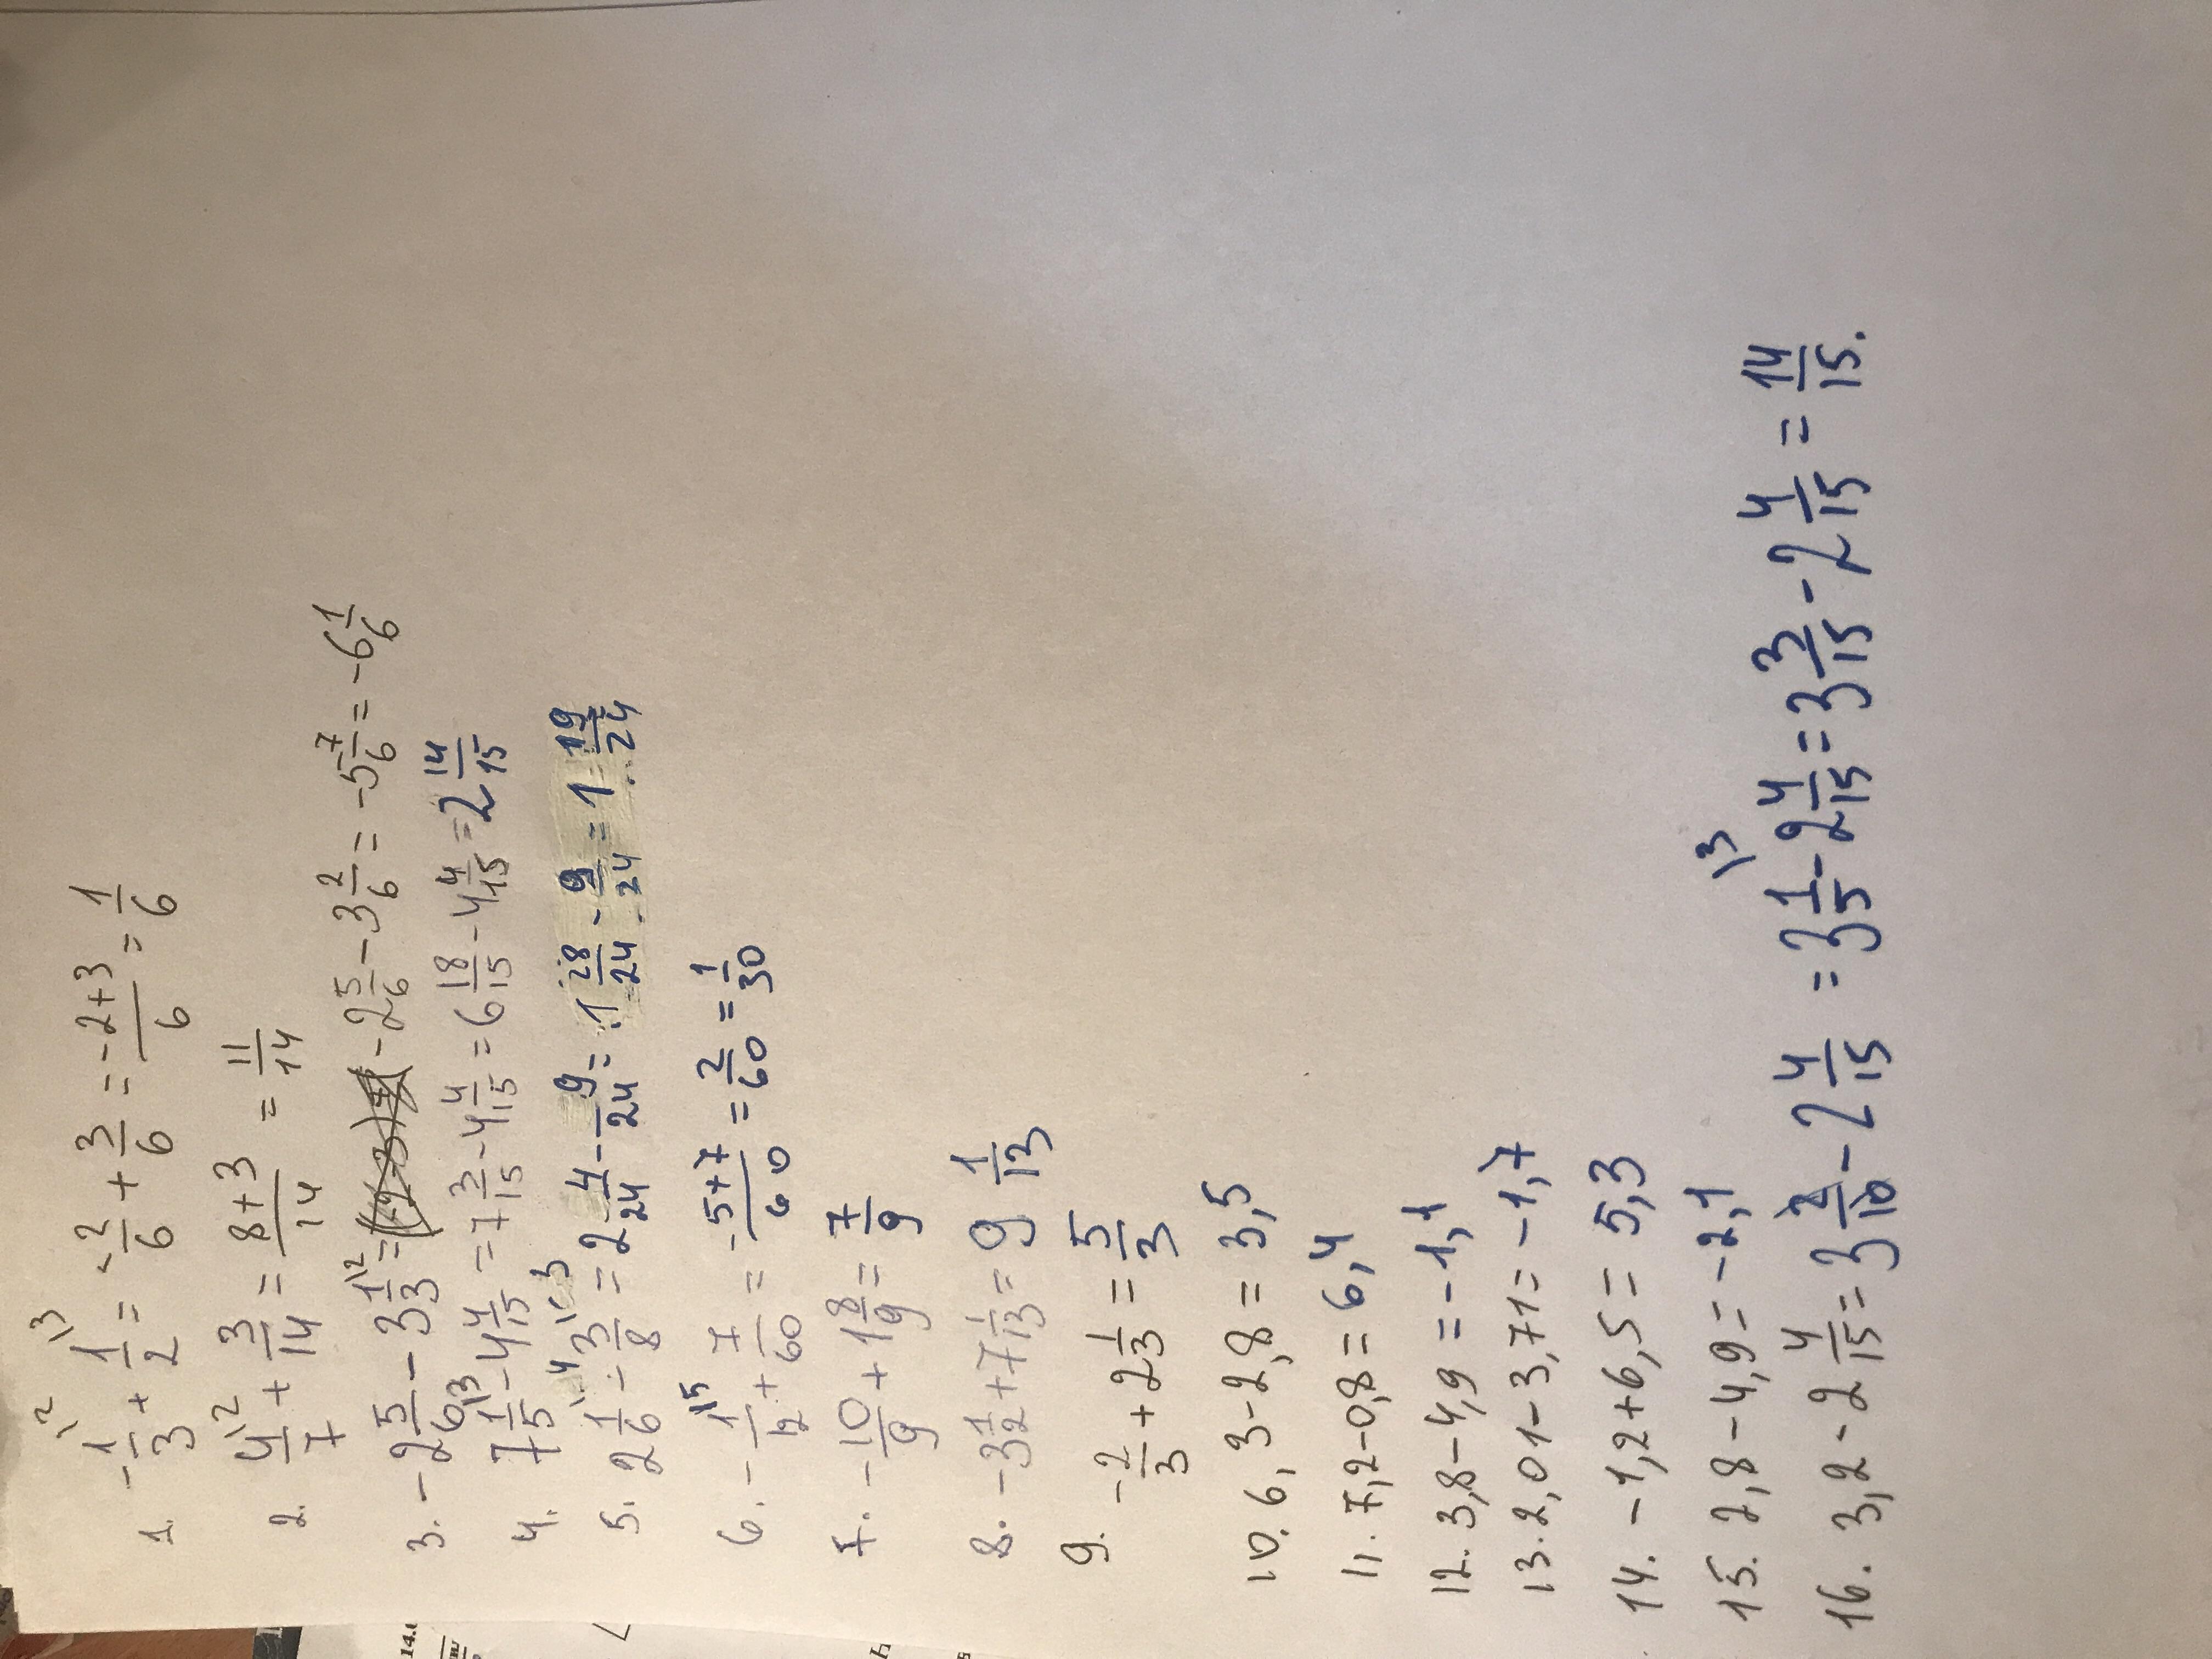 1. -1/3\2 + 1/2\3 = -2/6 + 3/6 = (-2+3)/6 = 1/6
2. 4/7\2 + 3/14 = (8+3)/14 = 11/14
3. -2 5/6 - 3 1/3\2 = -2 5/6 - 3 2/6 = -5 7/6 = -6 1/6
4. 7 1/5\3 - 4 4/15 = 7 3/15 - 4 4/15 = 6 18/15 - 4 4/15 = 2 14/15
5. 2 1/6\4 - 3/8\3 = 2 4/24 - 9/24 = 1 28/24 - 9/24 = 1 19/24
6. -1/12\5 + 7/60 = (-5+7)/60 = 2/60 = 1/30
7. -10/9 + 1 8/9 = 7/9
8. -3 1/2 + 7 1/13 = 9 1/13
9. -2/3 + 2 1/3 = 5/3
10. 6,3-2,8 = 3,5
11. 7,2-0,8 = 6,4
12. 3,8-4,9 = -1,1
13. 2,01-3,71 = -1,7
14. -1,2+6,5 = 5,3
15. 2,8-4,9 = -2,1
16. 3,2 - 2 4/15 = 3 2/10 - 2 4/15 = 3 1/5\3 - 2 4/15 = 3 3/15 - 2 4/15 = 14/15.
14.